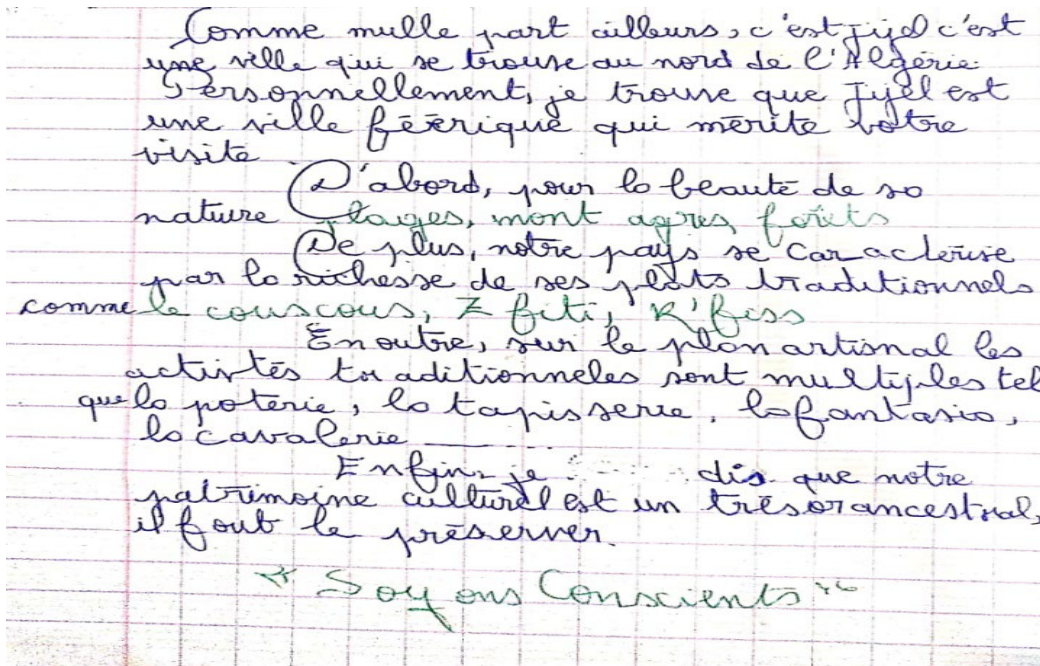 Comme mulle part ailleurs, c'est Jijel c'est
une ville qui se trouve au nord de l'Algérie.
Personnellement, je trouve que Jijel est
une ville féérique qui mérite votre
visite.
D'abord, pour la beauté de sa
nature plages, mont agres, forêts
De plus, notre pays se caractérise
par la richesse de ses plats traditionnels
comme le couscous, Z fiti, R'fiss
En outre, sur le plan artisnal les
activités traditionneles sont multiples tel
que la poterie, la tapisserie, la fantasia,
la cavalerie
Enfin, je dis que notre
patrimoine culturel est un trésor ancestral,
il faut le préserver.
"Soyons Conscients"